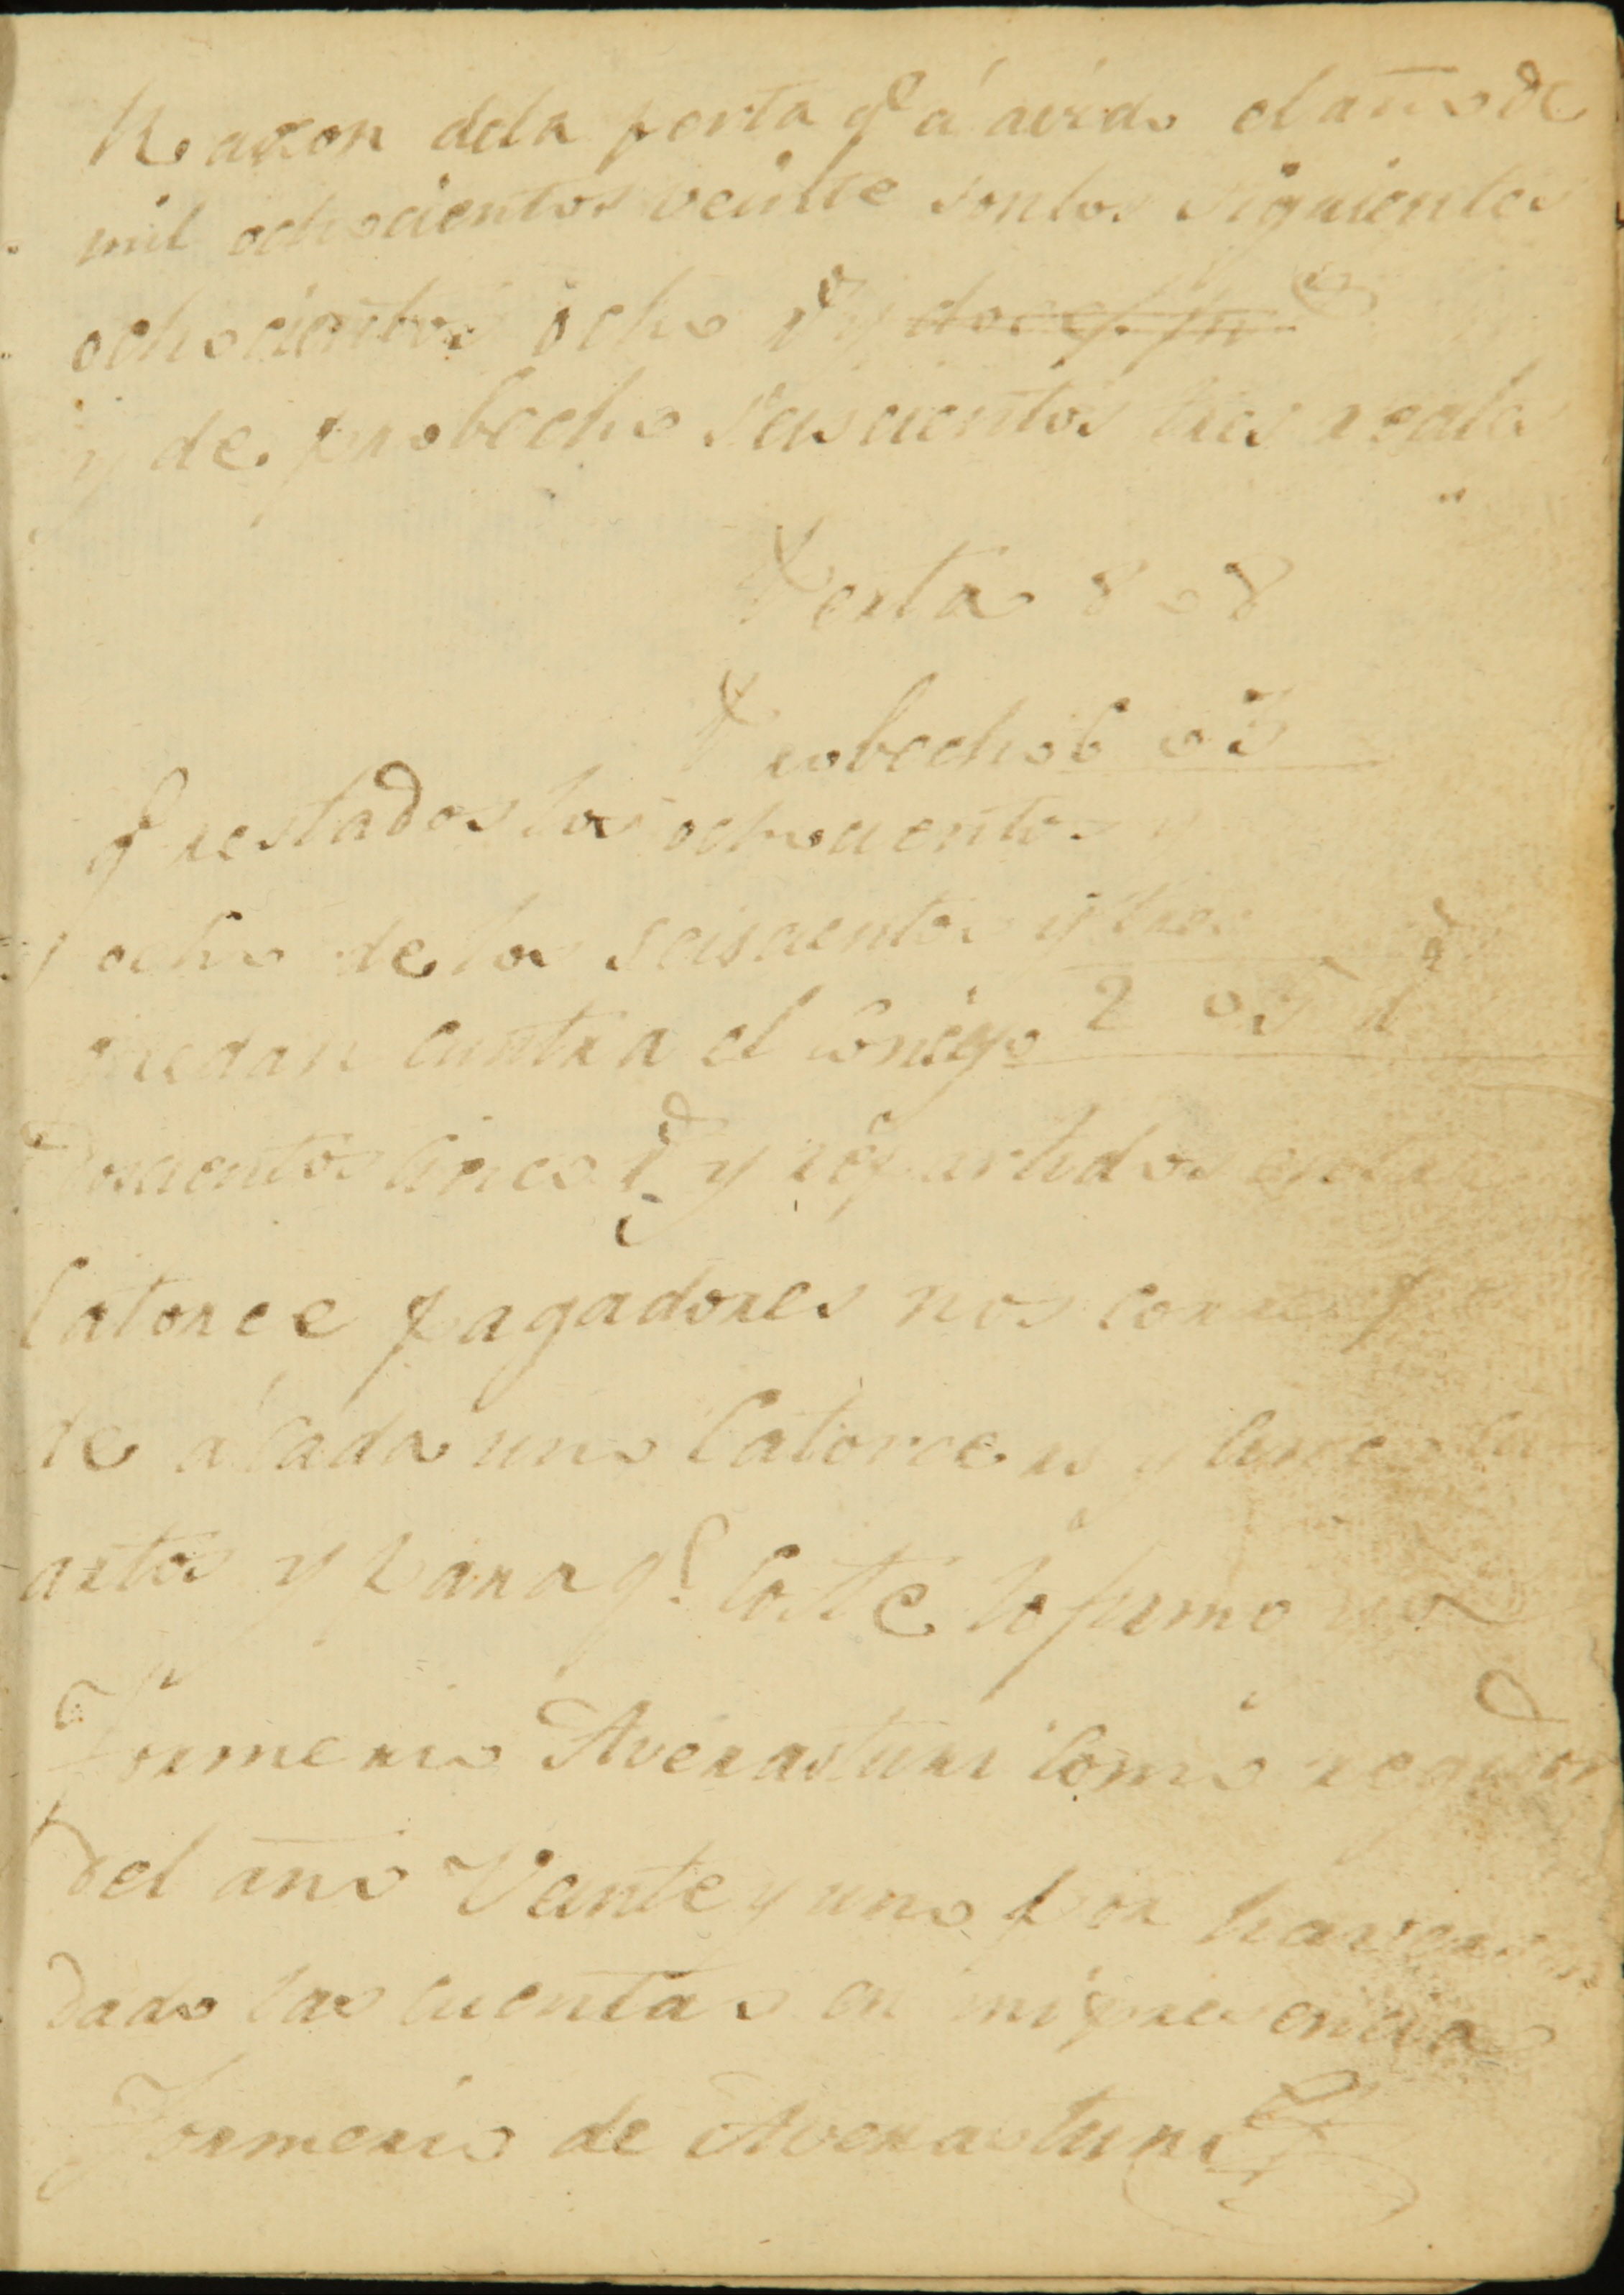 Raxon dela perta qe á avido el año de
mil ochocientos veinte son los siguientes
ochocientos ocho rs y
y de probecho seiscientos tres reales
Perta 808
Probecho 603
q restados los ochocientos y
ocho de los seiscientos y tres
quedan cuntra el Consejo 205 rs
Doscientos cinco rs y repartidos entre
Catorce pagadores nos corresp
de á cada uno Catorce rs y
artos y para qe Coste lo firmo yo
Formerio Averasturi como regidor
del año Veinte y uno por haverse
dado las cuentas en mi presencia
Formerio de Averasturi